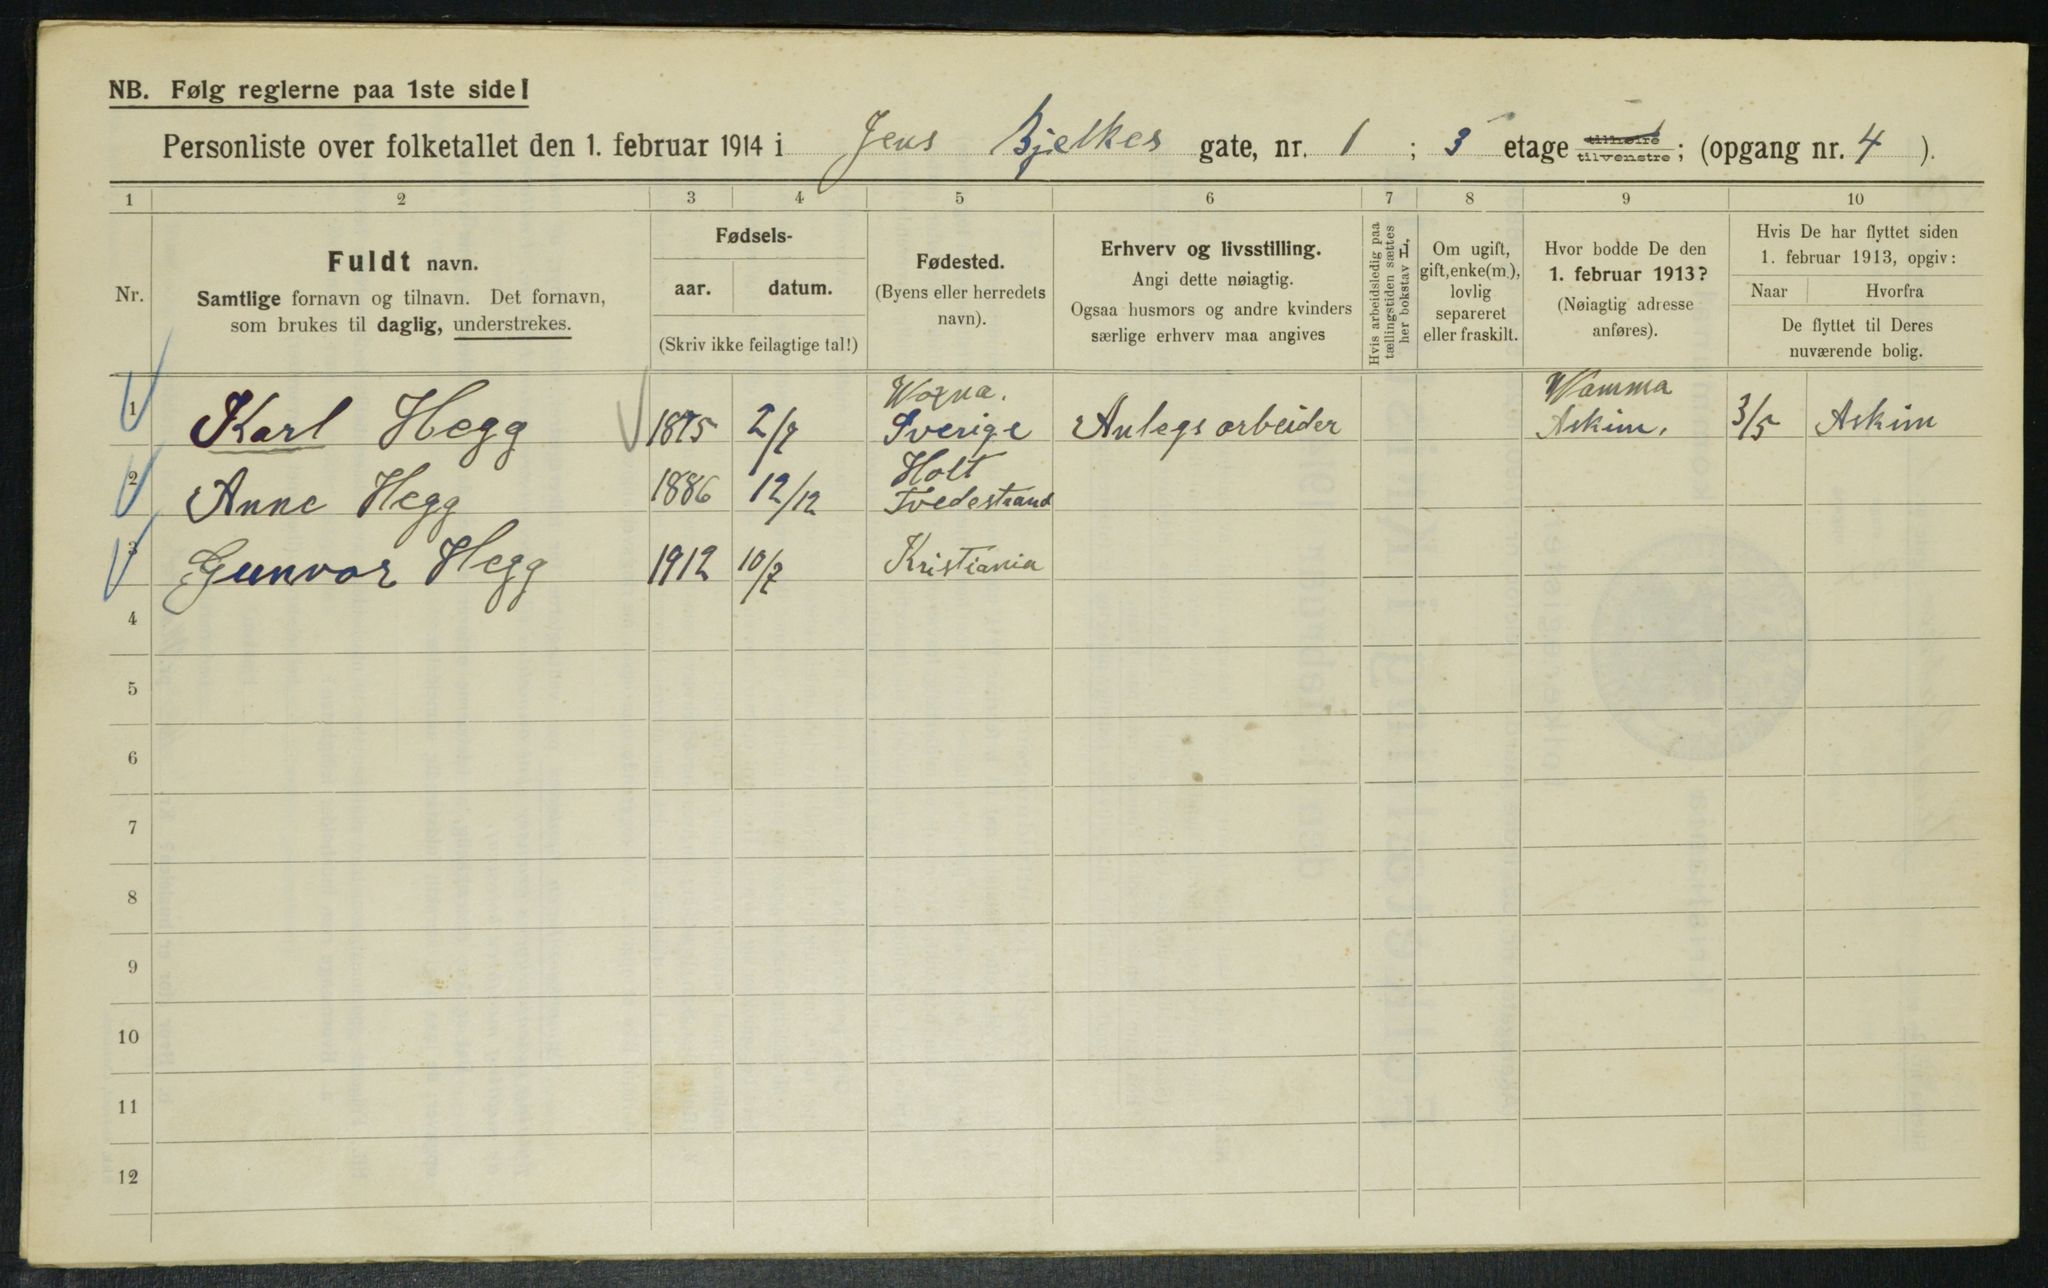 NB. Følg reglerne paa 1ste side!
Personliste over folketallet den 1. februar 1914 i Jens Bjelkes gate, nr. 1 ; 3 etage tilhøire tilvenstre; (opgang nr. 4 ).
1 2 3 4 5 6 7 8 9 10
Nr.
Fuldt navn.
Samtlige fornavn og tilnavn. Det fornavn,
som brukes til daglig, understrekes.
Fødsels-
aar. datum.
(Skriv ikke feilagtige tal!)
Fødested.
(Byens eller herredets
navn).
Erhverv og livsstilling.
Angi dette nøiagtig.
Ogsaa husmors og andre kvinders
særlige erhverv maa angives
Hvis arbeidsledig paa
tællingstiden sættes
her bokstav L.
Om ugift,
gift, enke(m.),
lovlig
separeret
eller fraskilt.
Hvor bodde De den
1. februar 1913?
(Nøiagtig adresse
anføres).
Hvis De har flyttet siden
1. februar 1913, opgiv:
Naar Hvorfra
De flyttet til Deres
nuværende bolig.
Woxna. Wamma
1 Karl Hegg 1875 2/7 Sverige Anlegsarbeider Askim. 3/5 Askim
Holt
2 Anne Hegg 1886 12/12 Tvedestrand
3 Gunvor Hegg 1912 10/7 Kristiania
4
5
6
7
8
9
10
11
12